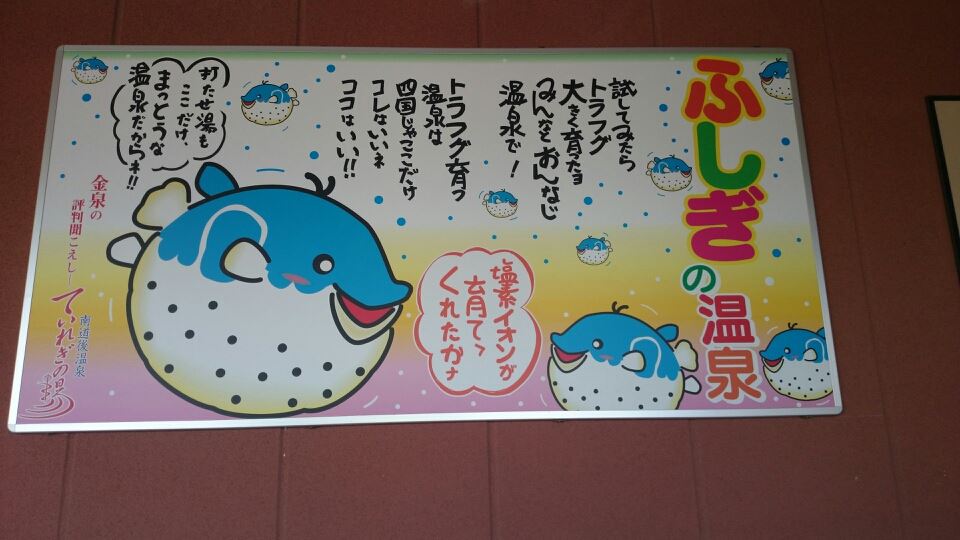 ふしぎの温泉
試してみたら
トラフグ
大きく育ったヨ
みんなおんなじ
温泉で!
トラフグ育つ
温泉は
四国じゃここだけ
コレはいいネ
ココはいい!!
塩素イオンが
育てゝ
くれたカナ
打たせ湯も
ここだけ、
まっとうな
温泉だからネ!!
金泉の
評判聞こえし
南道後温泉
ていれぎの湯